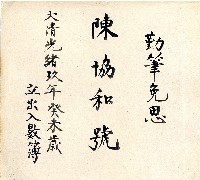 勤筆免思
陳協和號
大清光緒玖年癸未歲
立出入數簿